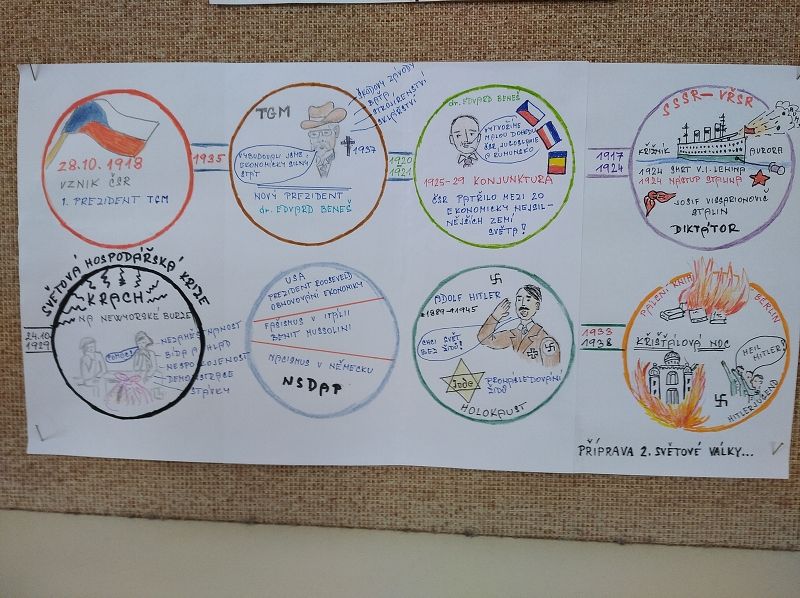 28.10.1918
VZNIK ČSR
1. PREZIDENT TGM
1935
TGM
ŠKODOVY ZÁVODY
BAŤA
STROJÍRENSTVÍ
SKLÁŘSTVÍ
1937
VYBUDOVALI JSME
EKONOMICKY SILNÝ
STÁT
NOVÝ PREZIDENT
dr. EDVARD BENEŠ
1920
1921
dr. EDVARD BENEŠ
VYTVOŘÍME
MALOU DOHODU
ČSR, JUGOSLÁVIE
A RUMUNSKO
1925-29 KONJUNKTURA
ČSR PATŘILO MEZI 20
EKONOMICKY NEJSIL-
NĚJŠÍCH ZEMÍ
SVĚTA!
1917
1924
SSSR - VŘSR
KŘIŽNÍK
AURORA
1924 SMRT V. I. LENINA
1924 NÁSTUP STALINA
JOSIF VISSARIONOVIČ
STALIN
DIKTÁTOR
SVĚTOVÁ HOSPODÁŘSKÁ KRIZE
24.10.
1929
KRACH
NA NEWYORSKÉ BURZE
POMOC!
NEZAMĚSTNANOST
BÍDA A HLAD
NESPOKOJENOST
DEMONSTRACE
STÁVKY
USA
PREZIDENT ROOSEVELD
OBNOVOVÁNÍ EKONOMIKY
FAŠISMUS V ITÁLII
BENIT MUSSOLINI
NACISMUS V NĚMECKU
NSDAP
ADOLF HITLER
*1889-+1945
CHCI SVĚT
BEZ ŽIDŮ!
Jude
PRONÁSLEDOVÁNÍ
ŽIDŮ
HOLOKAUST
1933
1938
PÁLENÍ KNIH
BERLÍN
KŘIŠŤÁLOVÁ NOC
HEIL
HITLER!
HITLERJUGEND
PŘÍPRAVA 2. SVĚTOVÉ VÁLKY...